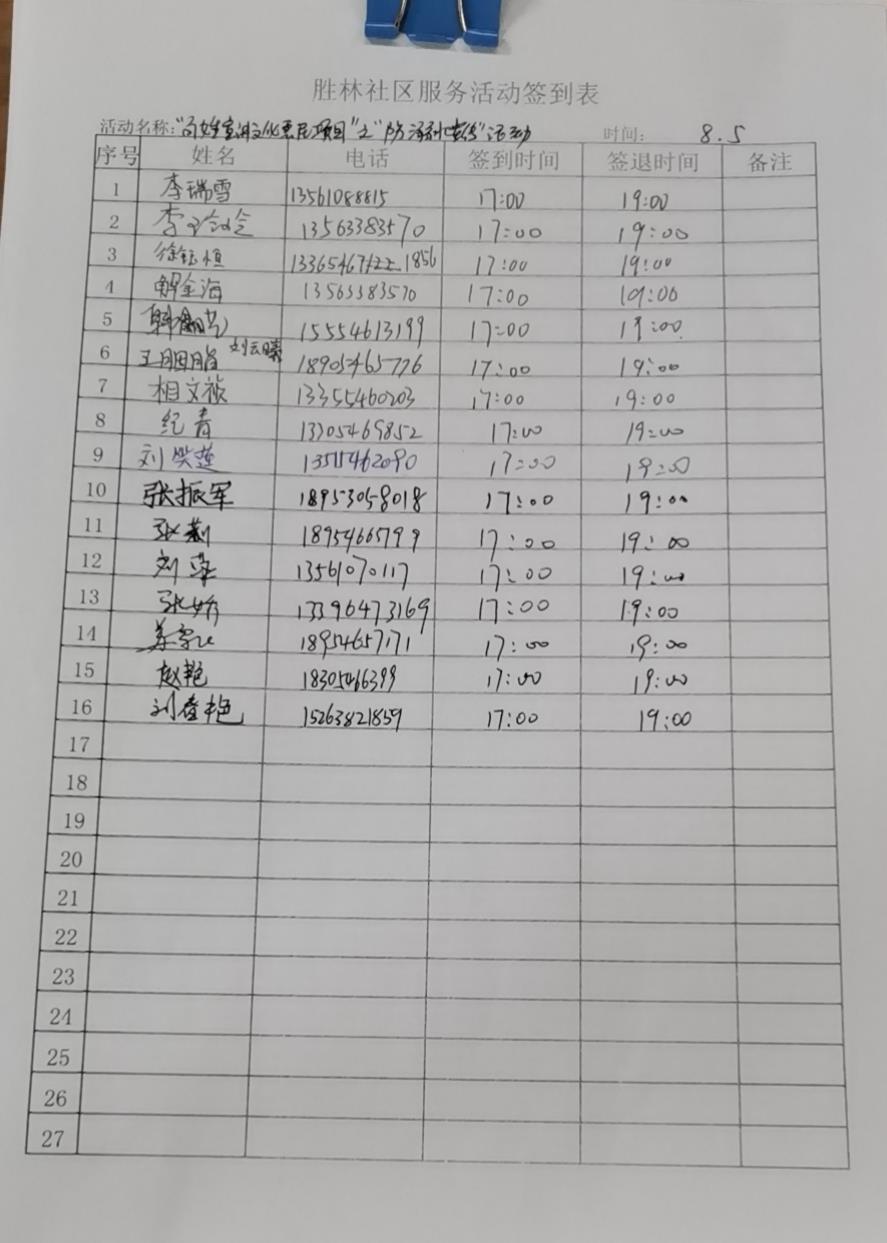 胜林社区服务活动签到表
活动名称: 文化惠民项目"之"防 宣传"活动 时间: 8.5
序号 姓名 电话 签到时间 签退时间 备注
1 李瑞雪 13561088815 17:00 19:00
2 李 13563383570 17:00 19:00
3 徐钰恒 1856 17:00 19:00
4 解金海 13563383570 17:00 19:00
5 15554613199 17:00 19:00
6 王胭脂 18905465776 17:00 19:00
7 相文祯 13355460203 17:00 19:00
8 纪青 13305469852 17:00 19:00
9 刘笑莲 13515462090 17:00 19:00
10 张振军 18953058018 17:00 19:00
11 18954665799 17:00 19:00
12 刘 13561070117 17:00 19:00
13 张娇 13396473169 17:00 19:00
14 18954657171 17:00 19:00
15 赵艳 18305466399 17:00 19:00
16 刘春艳 15263821859 17:00 19:00
17
18
19
20
21
22
23
24
25
26
27